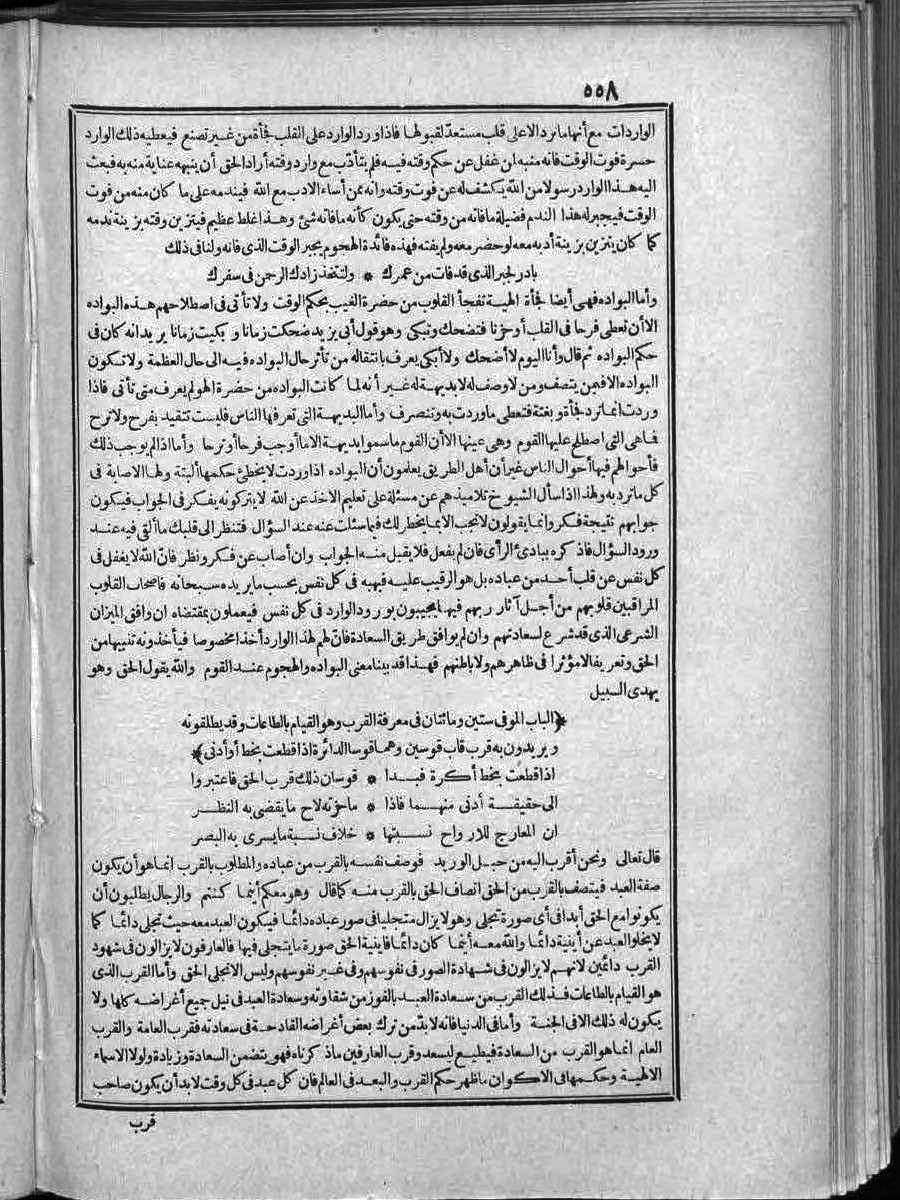 ٥٥٨
الواردات مع أنها ما ترد الا على قلب مستعد لقبولها فاذا ورد الوارد على القلب فجأة من غير تصنع فيعطيه ذلك الوارد
حسرة فوت الوقت فانه منبه لمن غفل عن حكم وقته فيه فلم يتأدب مع وارد وقته أراد الحق أن ينبهه عناية منه به فبعث
اليه هذا الوارد رسولا من الله يكشف له عن فوت وقته وانه ممن أساء الادب مع الله فيندمه على ما كان منه من فوت
الوقت فيجبر له هذا الندم فضيلة ما فاته من وقته حتى يكون كأنه ما فاته شئ وهذا غلط عظيم فيتزين وقته بزينة ندمه
كما كان يتزين بزينة أدبه معه لو حضر معه ولم يفته فهذه فائدة الهجوم يجبر الوقت الذى فاته ولنا فى ذلك
بادر لجبر الذى قد فات من عمرك * ولتتخذ زادك الرحمن فى سفرك
وأما البواده فهى أيضا فجأة الهية تفجأ القلوب من حضرة الغيب بحكم الوقت ولا تأتى فى اصطلاحهم هذه البواده
الا أن تعطى فرحا فى القلب أو حزنا فتضحك وتبكى وهو قول أبى يزيد ضحكت زمانا وبكيت زمانا يريد انه كان فى
حكم البواده ثم قال وأنا اليوم لا أضحك ولا أبكى يعرف بانتقاله من تأثر حال البواده فيه الى حال العظمة ولا تكون
البواده الا فيمن يتصف ومن لا وصف له لا بديهة له غير أنه لما كانت البواده من حضرة الهو لم يعرف متى تأتى فاذا
وردت انما ترد فجأة وبغتة فتعطى ما وردت به وتنصرف وأما البديهة التى تعرفها الناس فليست تتقيد بفرح ولا ترح
فاهى التى اصطلح عليها القوم وهى عينها الا أن القوم ما سموا بديهة الا ما أوجب فرحا أو ترحا وأما اذا لم يوجب ذلك
فأحوالهم فيها أحوال الناس غير أن أهل الطريق يعلمون أن البواده اذا وردت لا يخطئ حكمها ألبتة ولها الاصابة فى
كل ما ترد به ولهذا اذا سأل الشيوخ تلاميذهم عن مسئلة على تعليم الاخذ عن الله لا يتركونه يفكر فى الجواب فيكون
جوابهم نتيجة فكر وانما يقولون لا تجب الا بما يخطر لك فيما سئلت عنه عند السؤال فتنظر الى قلبك ما ألقى فيه عند
ورود السؤال فاذكره ببادئ الرأى فان لم يفعل فلا يقبل منه الجواب وان أصاب عن فكر ونظر فان الله لا يغفل فى
كل نفس عن قلب أحد من عباده بل هو الرقيب عليه فيهبه فى كل نفس بحسب ما يريده سبحانه فاصحاب القلوب
المراقبين قلوبهم من أجل آثار ربهم فيها يجيبون بورود الوارد فى كل نفس فيعملون بمقتضاه ان وافق الميزان
الشرعى الذى قد شرع لسعادتهم وان لم يوافق طريق السعادة فان لهم لهذا الوارد أخذا مخصوصا فيأخذونه تنبيها من
الحق وتعريفا لا مؤثرا فى ظاهرهم ولا باطنهم فهذا قد بينا معنى البواده والهجوم عند القوم والله يقول الحق وهو
يهدى السبيل
﴿الباب الموفى ستين ومائتان فى معرفة القرب وهو القيام بالطاعات وقد يطلقونه
ويريدون به قرب قاب قوسين وهما قوسا الدائرة اذا قطعت بخط أو أدنى﴾
اذا قطعت بخط أكرة فبدا * قوسان ذلك قرب الحق فاعتبروا
الى حقيقة أدنى منهما فاذا * ما حزته لاح ما يقضى به النظر
ان المعارج للارواح نسبتها * خلاف نسبة ما يسرى به البصر
قال تعالى ونحن أقرب اليه من حبل الوريد فوصف نفسه بالقرب من عباده والمطلوب بالقرب انما هو أن يكون
صفة العبد فيتصف بالقرب من الحق اتصاف الحق بالقرب منه كما قال وهو معكم أينما كنتم والرجال يطلبون أن
يكونوا مع الحق أبدا فى أى صورة تجلى وهو لا يزال متجليا فى صور عباده دائما فيكون العبد معه حيث تجلى دائما كما
لا يخلو العبد عن أينية دائما والله معه أينما كان دائما فاينية الحق صورة ما يتجلى فيها فالعارفون لا يزالون فى شهود
القرب دائمين لانهم لا يزالون فى شهادة الصور فى نفوسهم وفى غير نفوسهم وليس الا تجلى الحق وأما القرب الذى
هو القيام بالطاعات فذلك القرب من سعادة العبد بالفوز من شقاوته وسعادة العبد فى نيل جميع أغراضه كلها ولا
يكون له ذلك الا فى الجنة وأما فى الدنيا فانه لا بد من ترك بعض أغراضه القادحة فى سعادته فقرب العامة والقرب
العام انما هو القرب من السعادة فيطيع ليسعد وقرب العارفين ما ذكرناه فهو يتضمن السعادة وزيادة ولولا الاسماء
الالهية وحكمها فى الاكوان ما ظهر حكم القرب والبعد فى العالم فان كل عبد فى كل وقت لا بد أن يكون صاحب
قرب